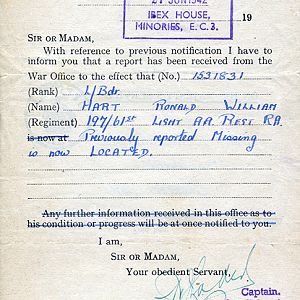 21 JUN 1942
IBEX HOUSE,
MINORIES, E.C.3.
19
SIR OR MADAM,
With reference to previous notification I have to
inform you that a report has been received from the
War Office to the effect that (No.) 1531831
(Rank) L/Bdr.
(Name) HART RONALD WILLIAM
(Regiment) 197/61st LIGHT AA. REGT RA.
is now at Previously reported Missing
is now LOCATED.
Any further information received in this office as to
his condition or progress will be at once notified to you.
I am,
SIR OR MADAM,
Your obedient Servant,
Captain.